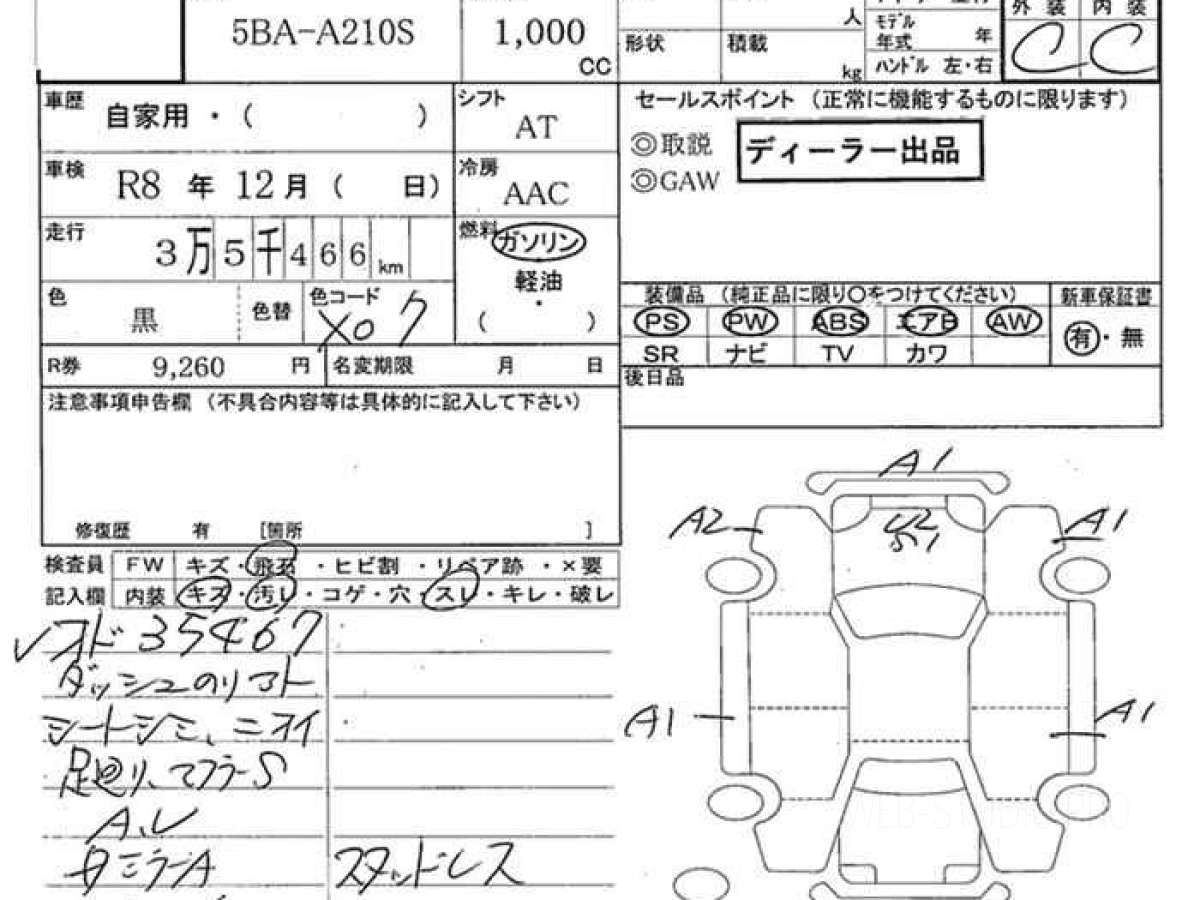 5BA-A210S
1,000
CC
人
形状
積載
kg
モデル
年式
年
ハンドル 左・右
外 装
内 装
C C
車歴
自家用 ・ ( )
シフト
AT
車検
R8 年 12 月 ( 日)
冷房
AAC
走行
3 万 5 千 4 6 6 km
燃料
ガソリン
軽油
・
( )
色
黒
色替
色コード
X07
R券
9,260 円
名変期限 月 日
セールスポイント (正常に機能するものに限ります)
◎取説
◎GAW
ディーラー出品
装備品 (純正品に限り○をつけてください)
新車保証書
PS PW ABS エアB AW
有・無
SR ナビ TV カワ
後日品
注意事項申告欄 (不具合内容等は具体的に記入して下さい)
修復歴 有 [箇所 ]
検査員 FW キズ・飛石・ヒビ割・リペア跡・×要
記入欄 内装 キズ・汚レ・コゲ・穴・スレ・キレ・破レ
✓オド 35467
ダッシュのリアト
シートシミ、ニオイ
足廻り、マフラーS
スタッドレス
A1
A2
A1
U2
S1
A1
A1
WEB-STUDIO.PRO